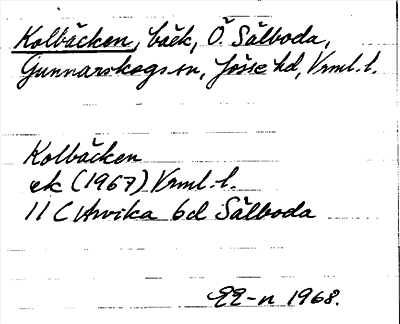 Kolbäcken, bäck, Ö. Sälboda,
Gunnarskogs sn, Jösse hd, Vrml. l.
Kolbäcken
ek (1967) Vrml. l.
11 C Arvika 6d Sälboda
1968.